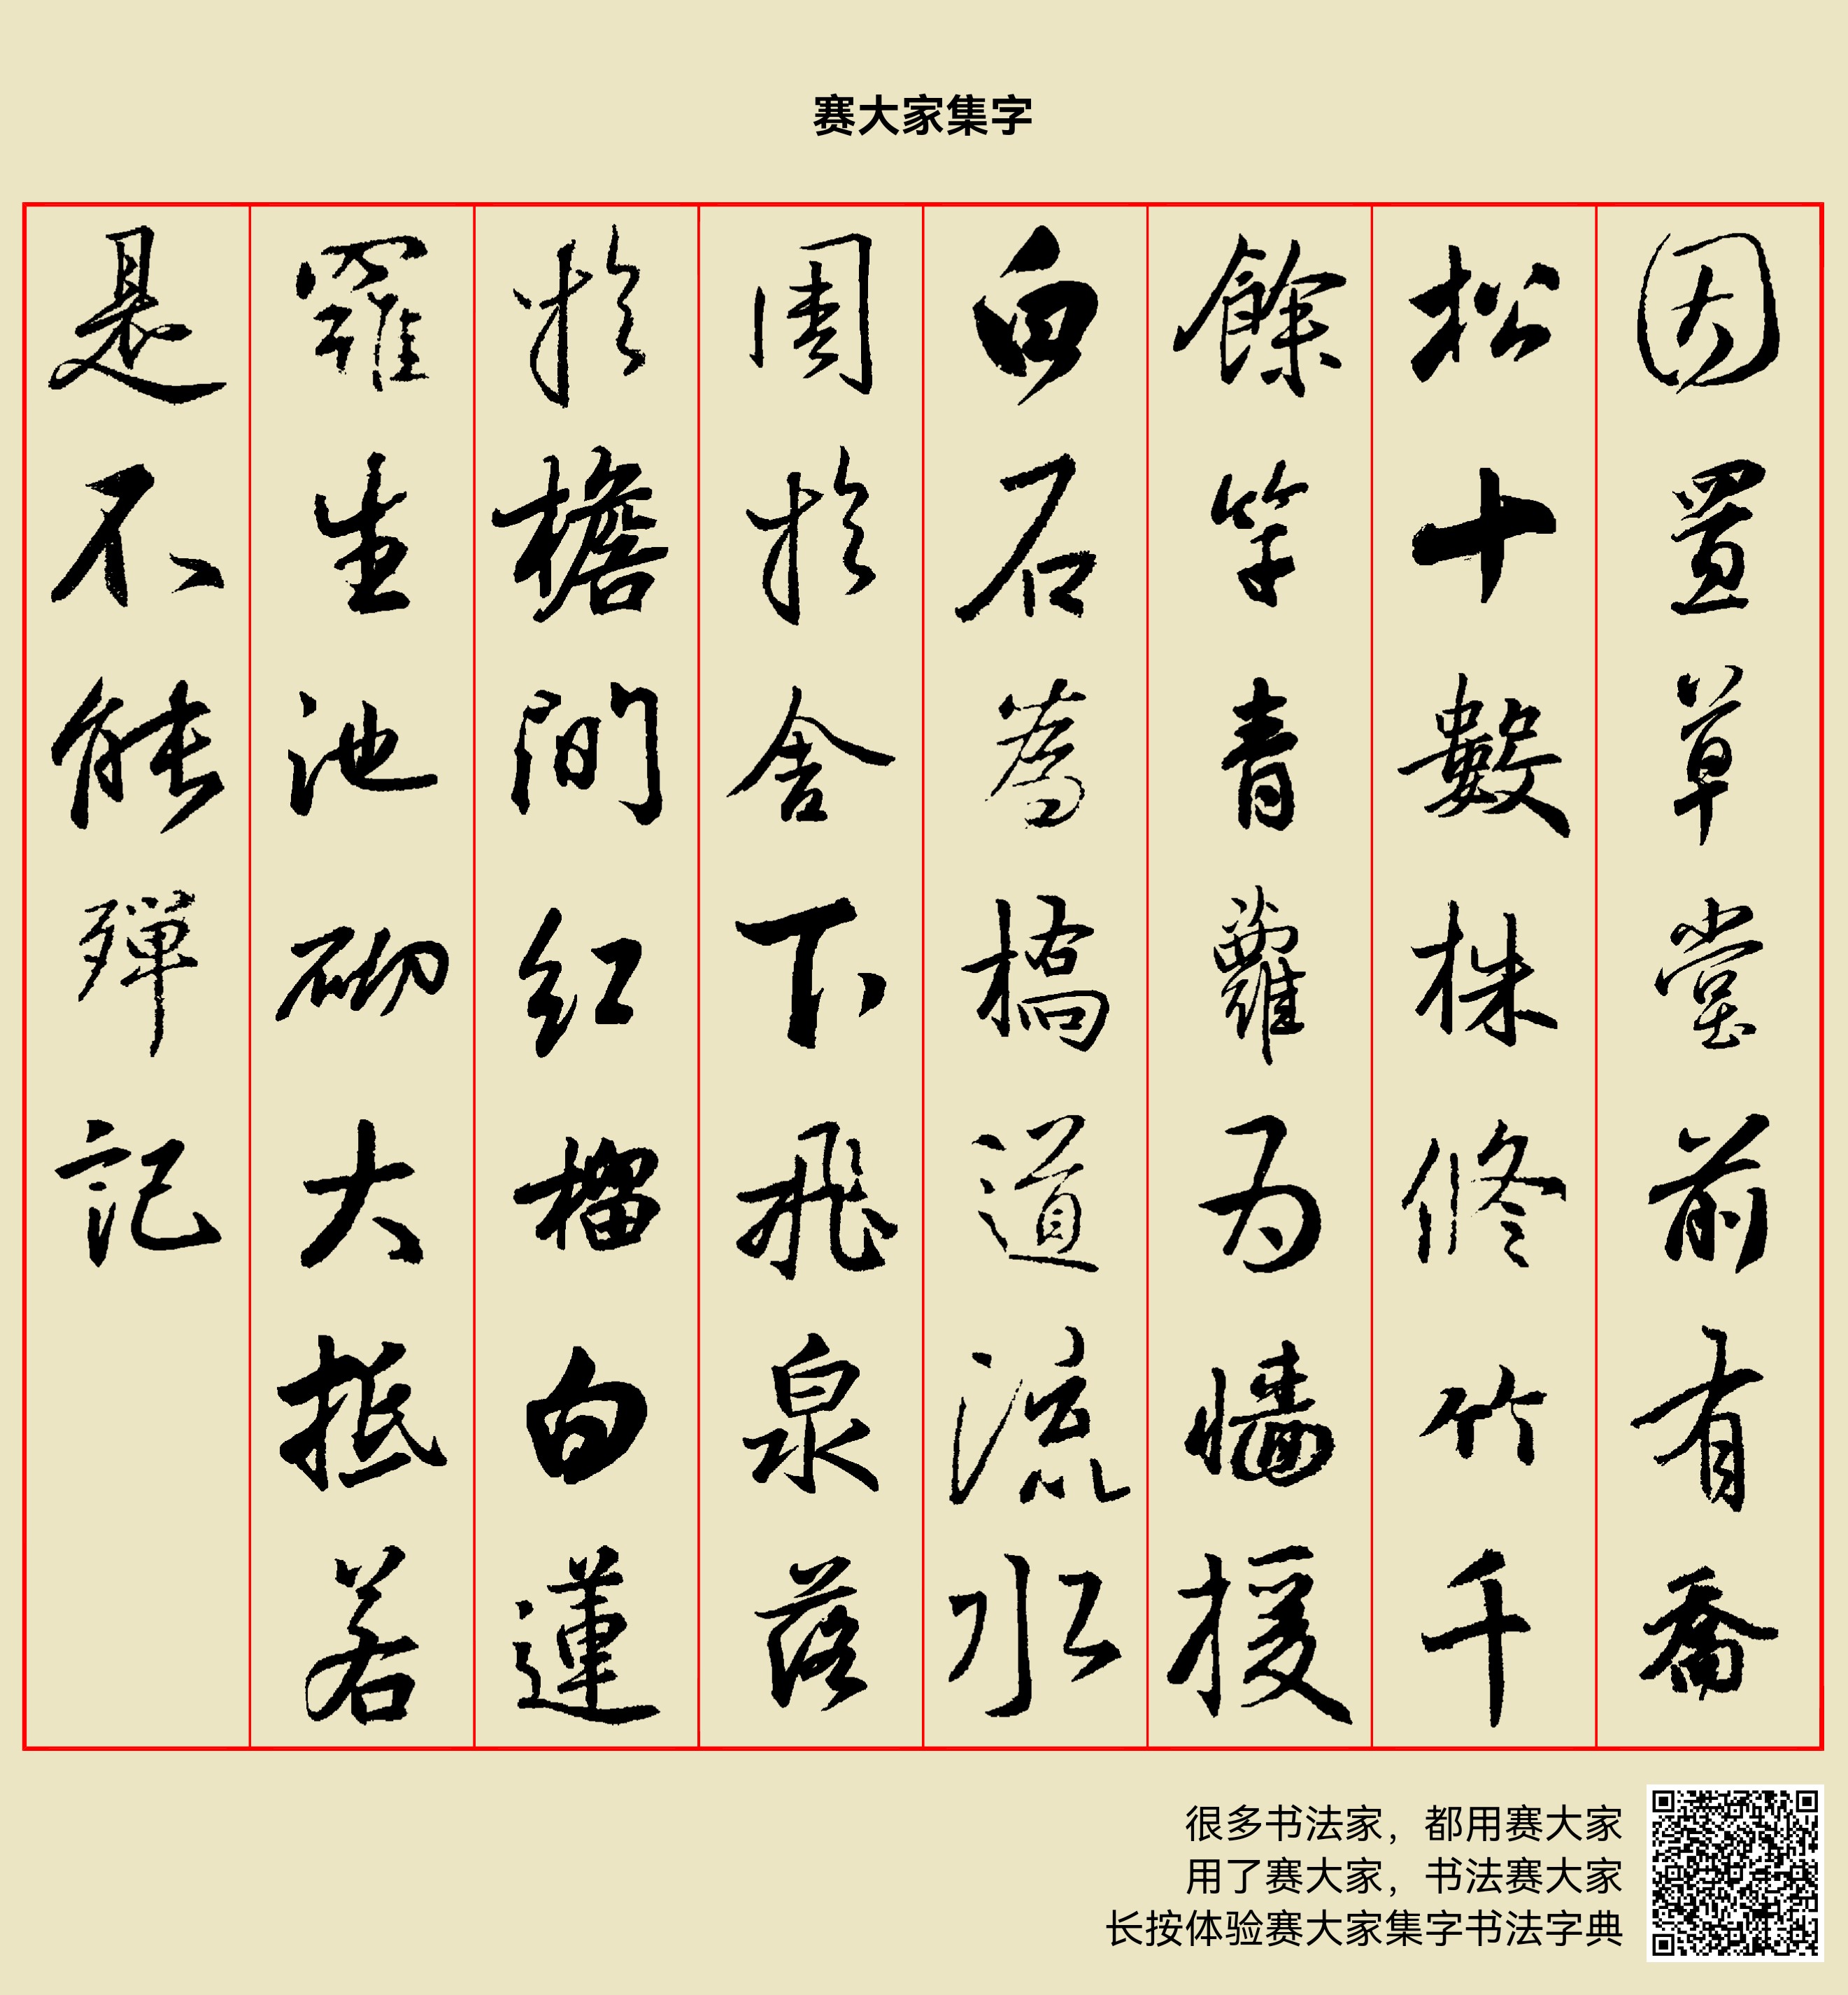 赛大家集字
因置草堂前有喬
松十數株修竹千
餘竿青蘿为墻援
白石為橋道流水
周於舍下飛泉落
於檐間红榴白蓮
羅生池砌大抵若
是不能殫記
很多书法家，都用赛大家
用了赛大家，书法赛大家
长按体验赛大家集字书法字典